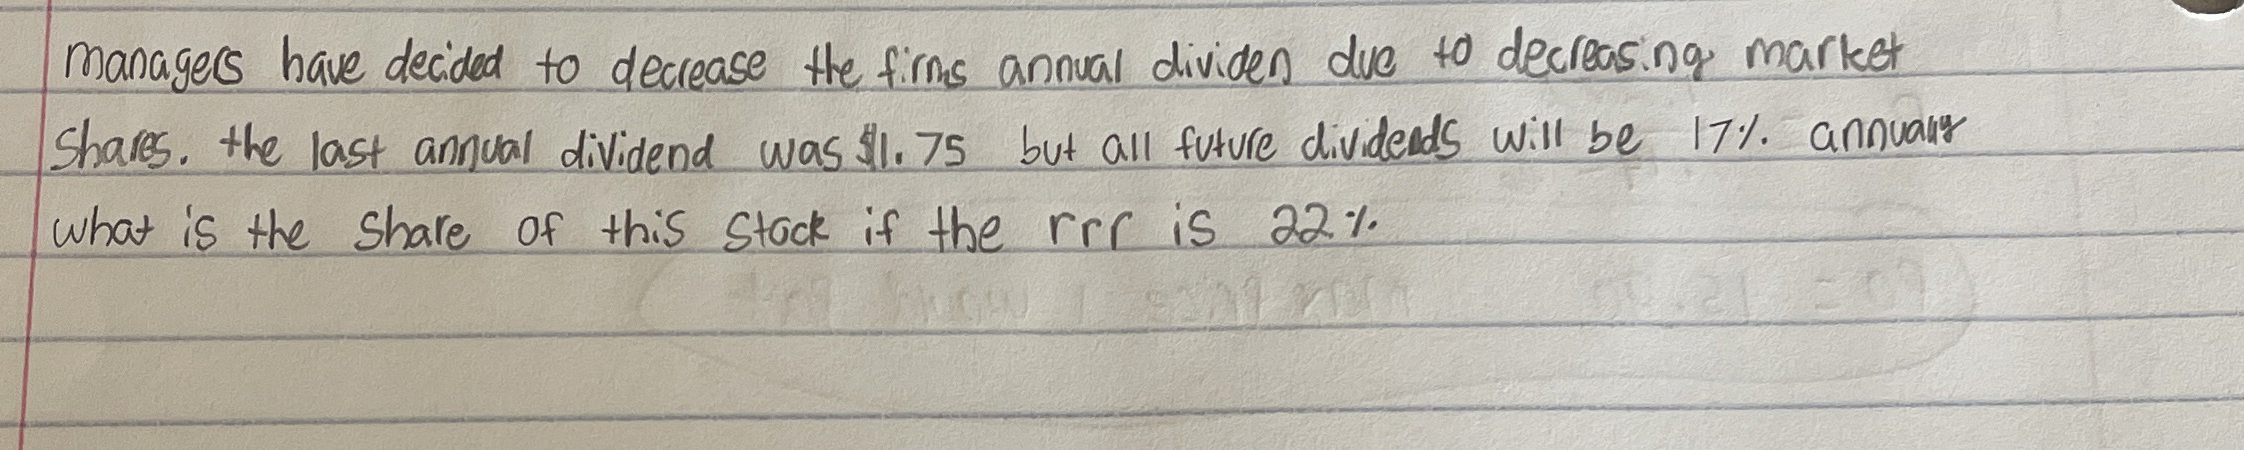 managers have decided to decrease the firms annual dividen due to decreasing market
shares. the last annual dividend was $1.75 but all future dividends will be 17% annualy
what is the share of this stock if the rrr is 22%